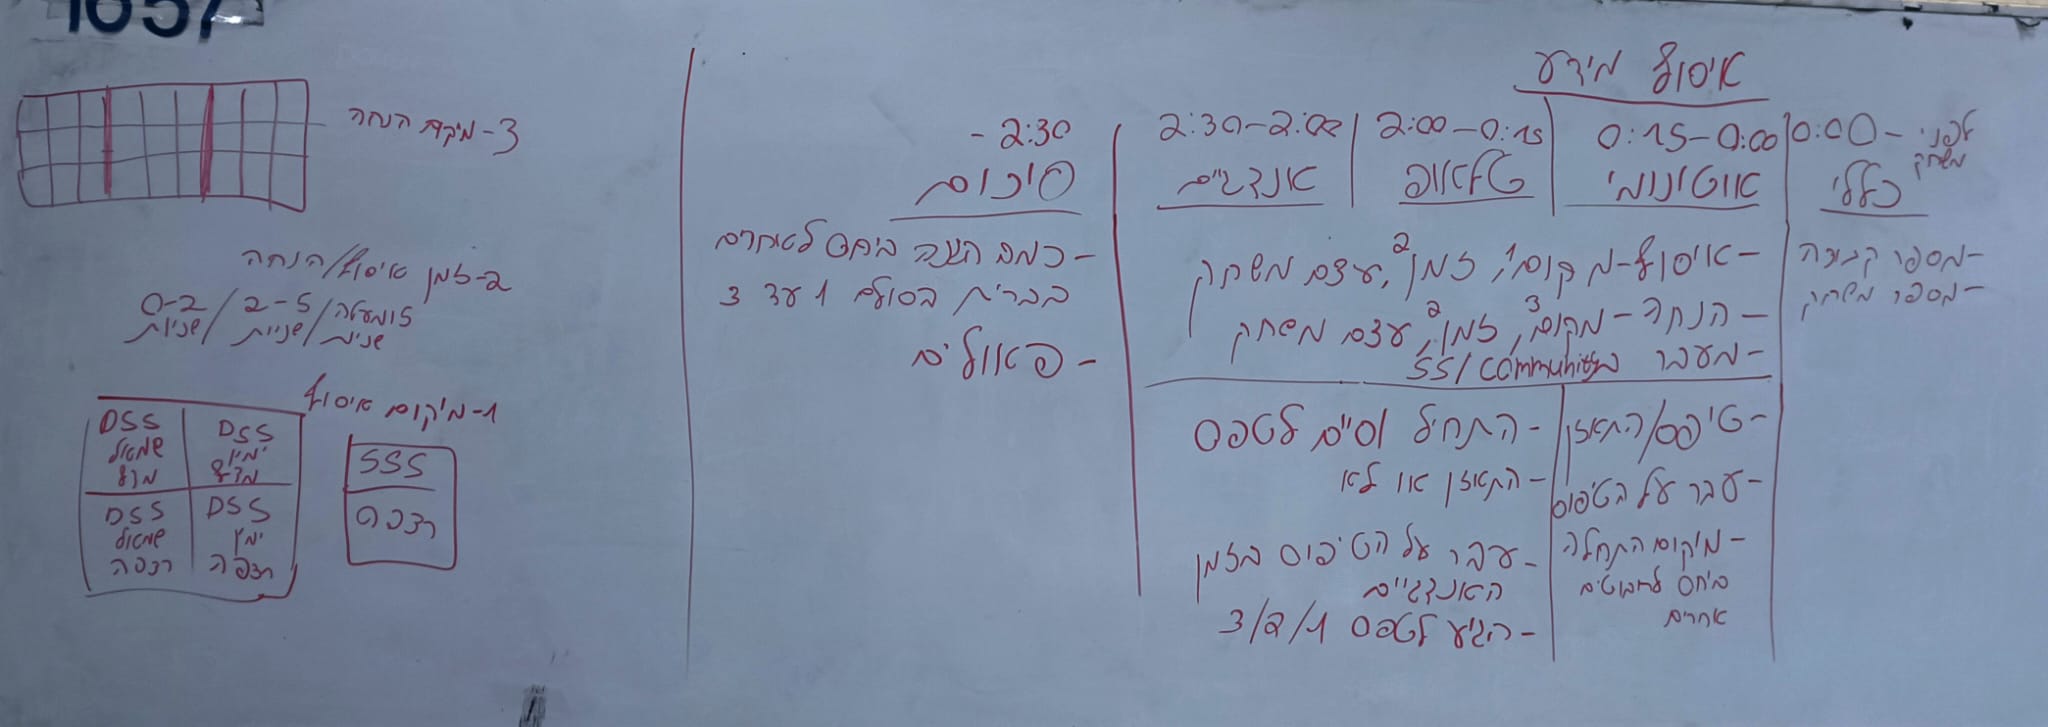 1657
איסוף מידע
לפני משחק - 0:00
כללי
-מספר קבוצה
-מספר משחק
0:15-0:00
אוטונומי
2:00-0:15
טלאופ
2:30-2:00
אנדגיים
-איסוף-מקום1, זמן2, עצם משחק
-הנחה-מקום3, זמן2, עצם משחק
-מעבר ב SS/Community
-טיפס/התאזן
-עבר על הטיפוס
-מיקום התחלה
ביחס לרובוטים
אחרים
-התחיל וסיים לטפס
-התאזן או לא
-עבר על הטיפוס בזמן
האנדגיים
-הגיע לטפס 3/2/1
- 2:30
סיכום
-כמה הגנה ביחס לאחרים
בברית בסולם 1 עד 3
-פאולים
3-מיקום הנחה
2-זמן איסוף/הנחה
0-2 / 2-5 / ומעלה
שניות / שניות / שניות
1-מיקום איסוף
DSS
שמאול
מדף
DSS
ימין
מדף
DSS
שמאול
רצפה
DSS
ימין
רצפה
SSS
רצפה